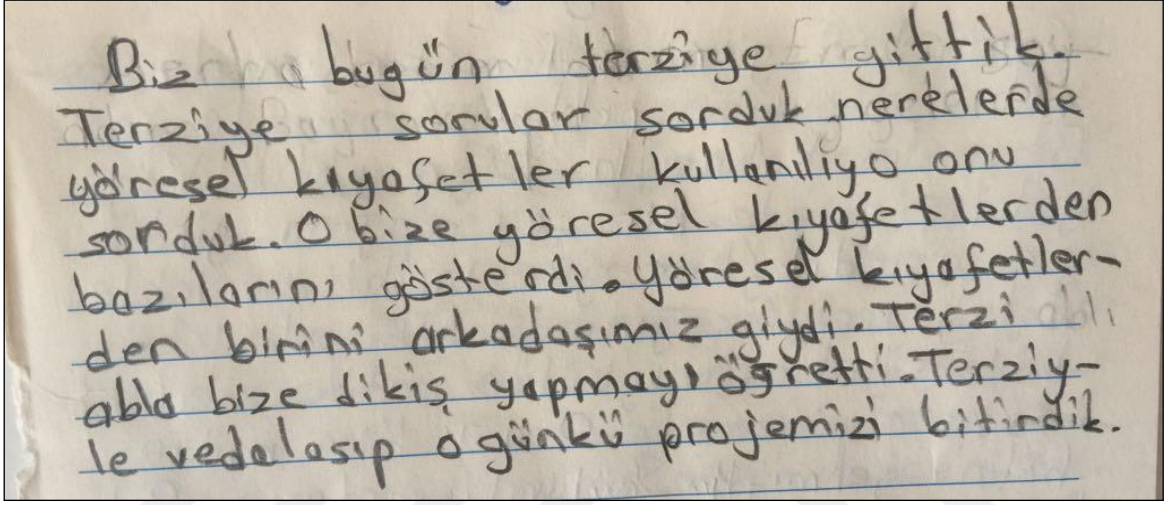 Biz bugün terziye gittik.
Terziye sorular sorduk nerelerde
yöresel kıyafetler kullanıliyo onu
sorduk. O bize yöresel kıyafetlerden
bazılarını gösterdi. Yöresel kıyafetler-
den birini arkadaşımız giydi. Terzi
abla bize dikiş yapmayı öğretti. Terziy-
le vedalasıp o günkü projemizi bitirdik.